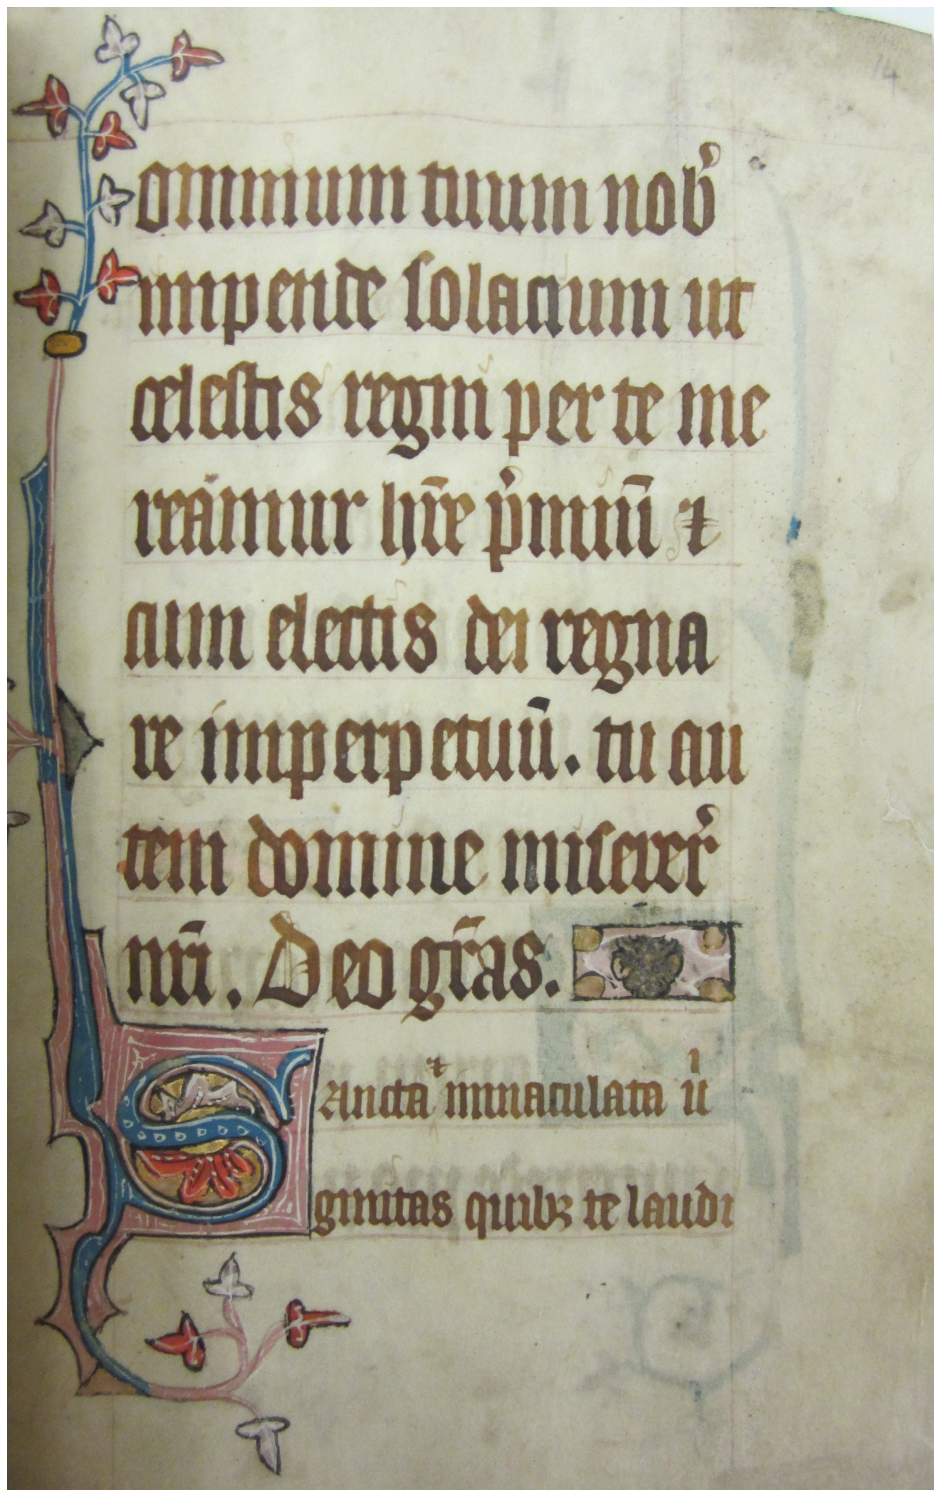 14
omnium tuum nob̾
impende solacium ut
celestis regni per te me
reamur hr̅e p̾miu̅ ⁊
cum electis dei regna
re imperpetuu̅. tu au
tem domine miserer̾
nr̅i. Deo gr̅as.
Sancta ⁊ inmaculata ui̾
ginitas quibꝫ te laudi